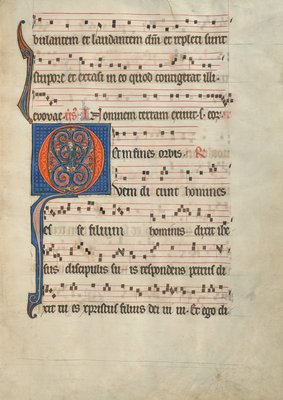 bulantem et laudantem dm et repleti sunt
stupore et extasi in eo quod contigerat illi.
evovae. In omnem terram exivit s. eor.
Et in fines orbis. R
Quem di cunt homines
es se filium hominis dixit ihe
sus discipulis su is respondens petrus di
xit tu es xpristus filius dei vi vi. Et ego di